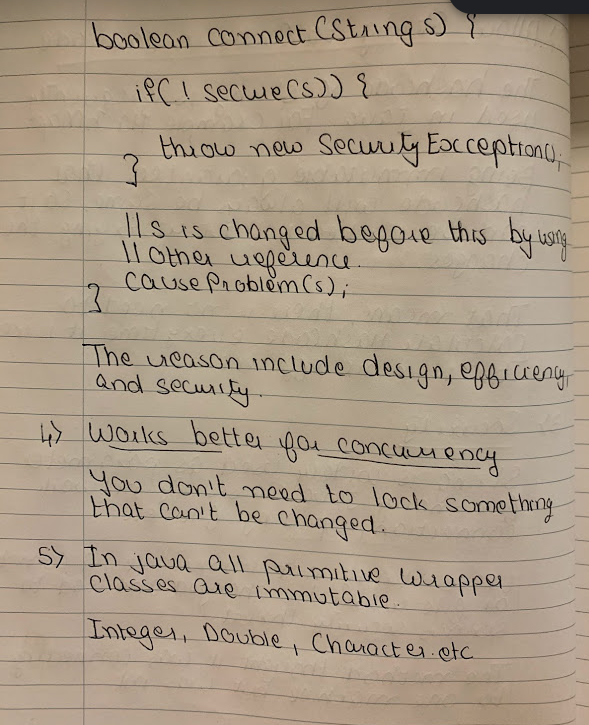 boolean connect (String s) {
if( ! secure(s)) {
throw new Security Exception();
}
// s is changed before this by using
// other reference.
cause Problem(s);
}
The reason include design, efficiency,
and security.
4> Works better for concurrency
You don't need to lock something
that can't be changed.
5> In java all primitive wrapper
classes are immutable.
Integer, Double, Character.etc